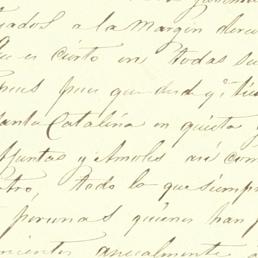 tados a la Margin derec
que es cierto en todas su
pues que desd
Santa Catalina en quieta y
Adjuntas y Amoles asi com
tro, todo lo que siempr
personas quienes han p
anualmente